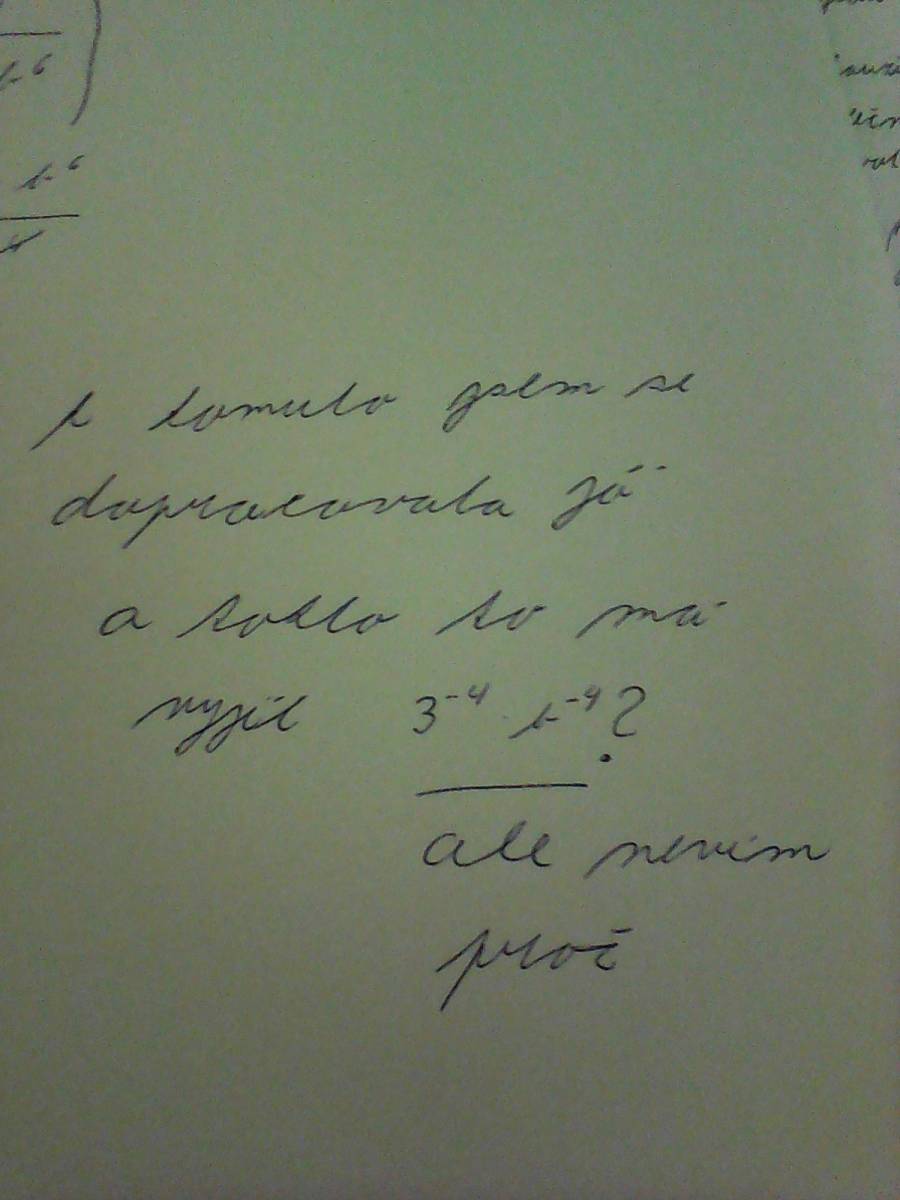 b⁶
b⁶
k tomuto jsem se
dopracovala já
a tohto to má
vyjít 3⁻⁴ · b⁻⁴?
ale nevim
proč